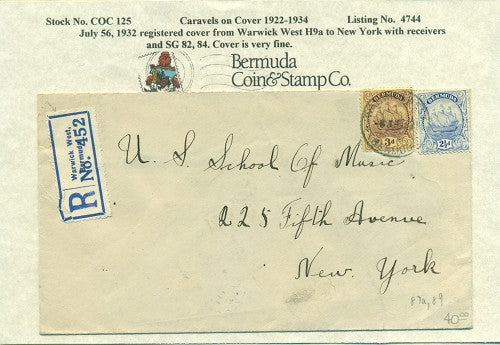 Stock No. COC 125 Caravels on Cover 1922-1934 Listing No. 4744
July 56, 1932 registered cover from Warwick West H9a to New York with receivers
and SG 82, 84. Cover is very fine.
Bermuda
Coin&Stamp Co.
R
Warwick West,
Bermuda
No. 452
BERMUDA
3d
BERMUDA
2½d
U. S. School Of Music
225 Fifth Avenue
New York
87a, 89
40.00